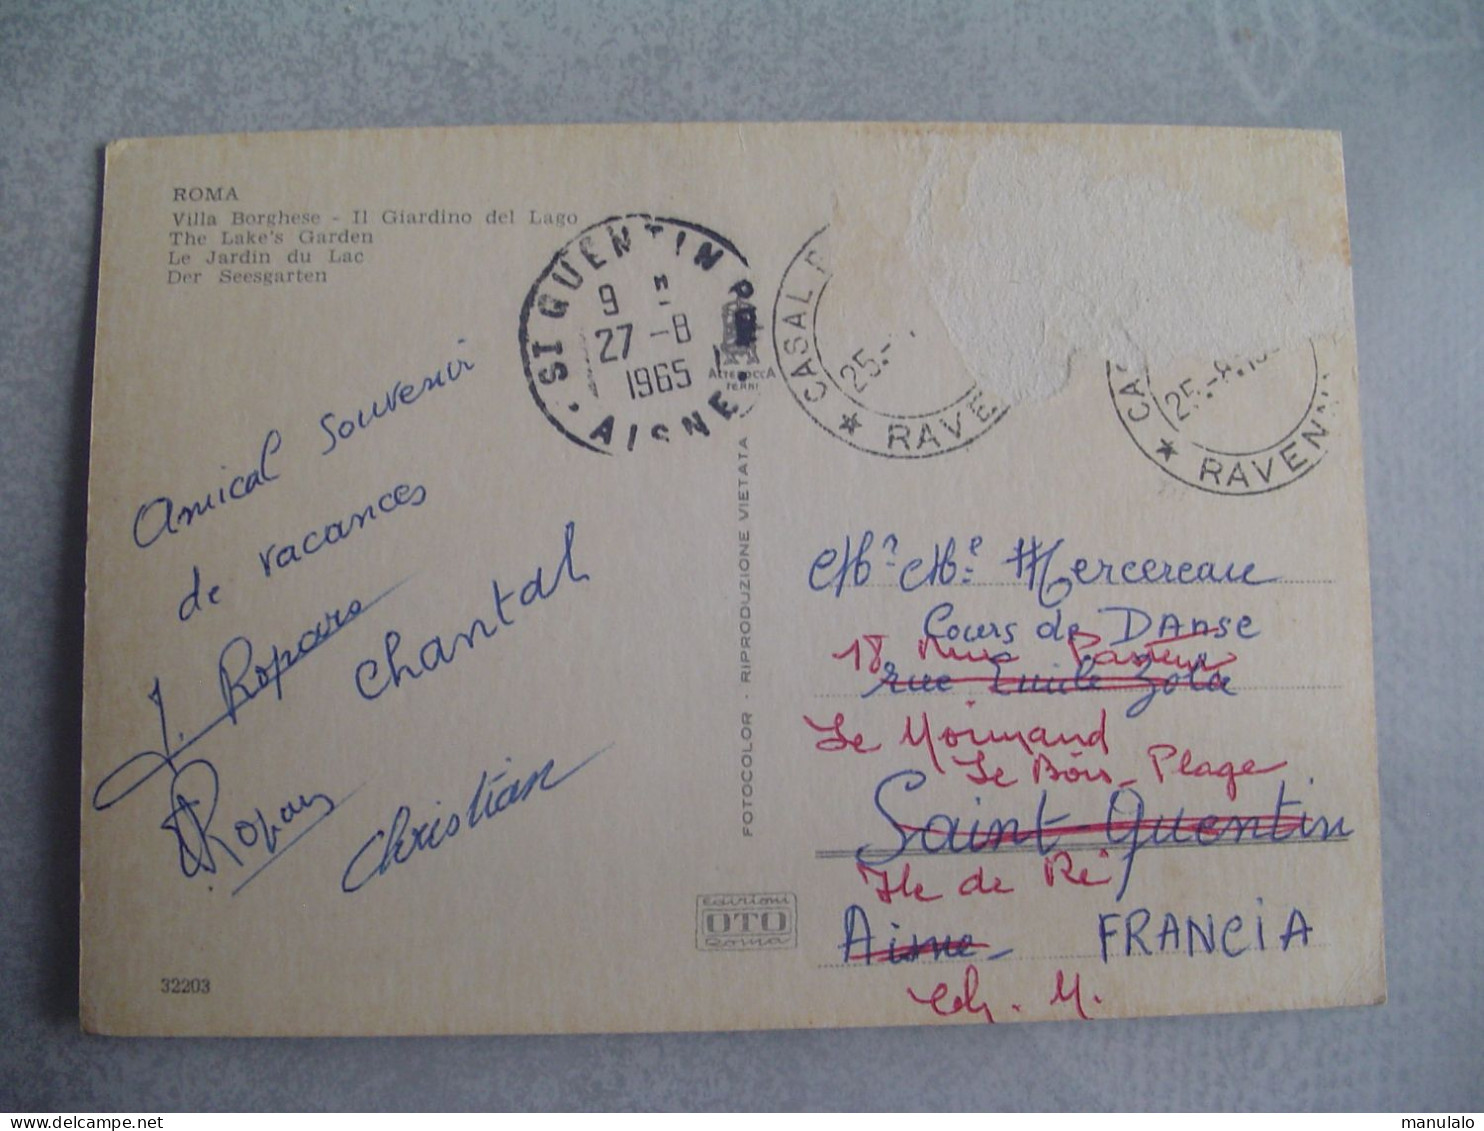 ROMA
Villa Borghese - Il Giardino del Lago
The Lake's Garden
Le Jardin du Lac
Der Seesgarten
ST QUENTIN PPAL
9 H
27 -8
1965
AISNE
ALTEROCCA
TERNI
CASAL
25.-
RAVE
CAS
25.-8.
RAVENN
Amical souvenir
de vacances
J. Ropars
Chantal
Ropars
Christian
FOTOCOLOR - RIPRODUZIONE VIETATA
Mr. Me. Mercereau
Cours de DANSE
18 Rue Pasteur
rue Emile Zola
Le Normand
Le Bois-Plage
Saint-Quentin
Ile de Ré
Aisne - FRANCIA
Ch. M.
Edizioni
OTO
Roma
32203
www.delcampe.net
manulalo